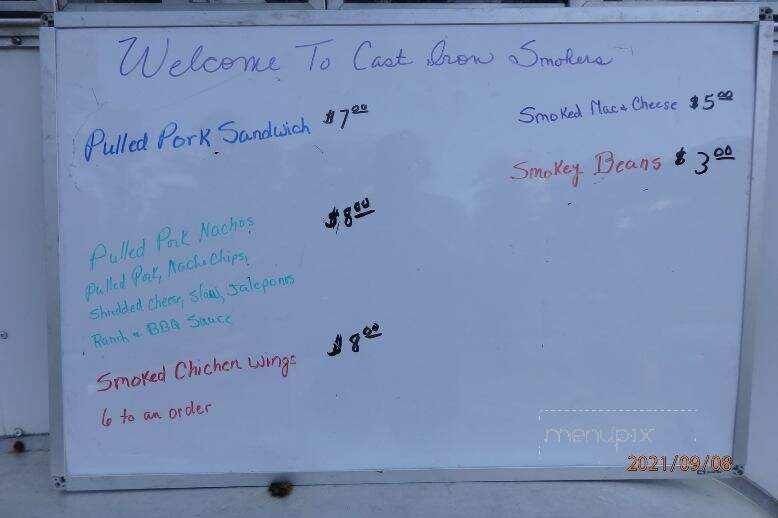 Welcome To Cast Iron Smokers
Pulled Pork Sandwich $7.00
Pulled Pork Nachos $8.00
Pulled Pork, Nacho Chips,
Shredded Cheese, Slaw, Jaleponos
Ranch & BBQ Sauce
Smoked Chicken Wings $8.00
6 to an order
Smoked Mac & Cheese $5.00
Smokey Beans $3.00
menupix
2021/09/08